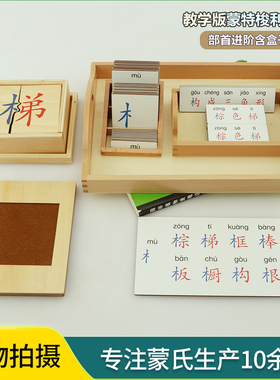 教学版蒙特梭利
部首进阶含盒
mù
木
梯
gòu chéng sān jiǎo xíng
构成三角形
zōng sè tī
棕色梯
棕色梯
zōng tī kuàng bàng
棕梯框棒
mù
木
bǎn chú gòu gēn
板橱构根
物拍摄
专注蒙氏生产10余